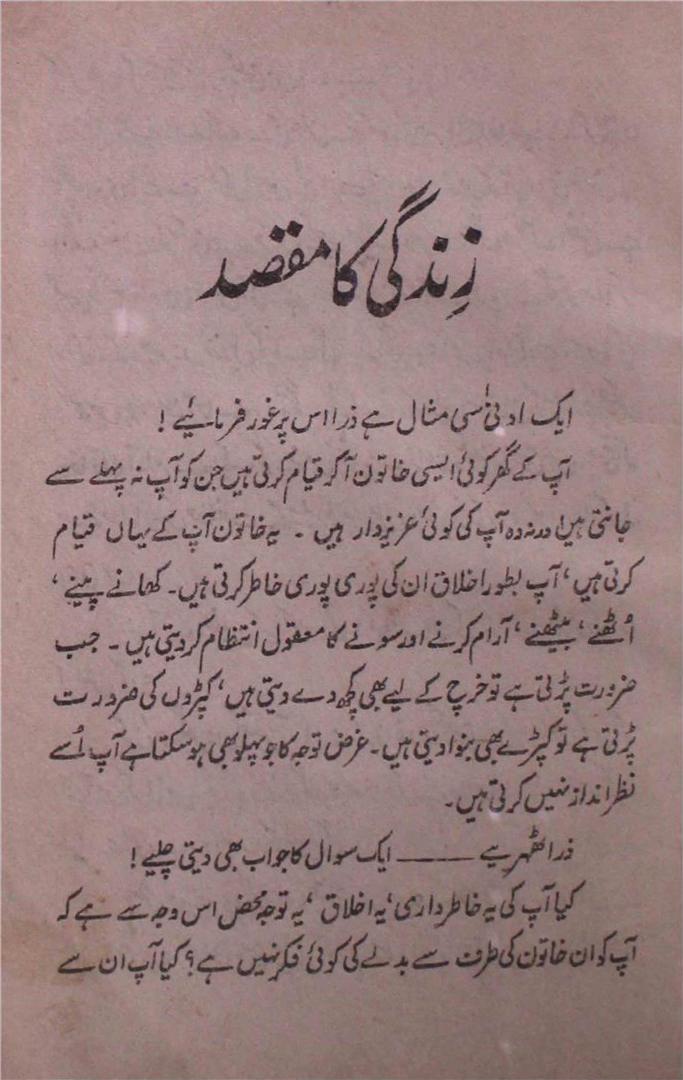 زندگی کا مقصد
ایک ادنیٰ سی مثال ہے ذرا اس پر غور فرمائیے!
آپ کے گھر کوئی ایسی خاتون آکر قیام کرتی ہیں جن کو آپ نہ پہلے سے
جانتی ہیں اور نہ وہ آپ کی کوئی عزیز دار ہیں ۔ یہ خاتون آپ کے یہاں قیام
کرتی ہیں، آپ بطور اخلاق ان کی پوری پوری خاطر کرتی ہیں۔ کھانے پینے،
اُٹھنے، بیٹھنے، آرام کرنے اور سونے کا معقول انتظام کر دیتی ہیں ۔ جب
ضرورت پڑتی ہے تو خرچ کے لیے بھی کچھ دے دیتی ہیں، کپڑوں کی ضرورت
پڑتی ہے تو کپڑے بھی بنوا دیتی ہیں۔ غرض توجہ کا جو پہلو بھی ہو سکتا ہے آپ اُسے
نظر انداز نہیں کرتی ہیں۔
ذرا ٹھہریے ——— ایک سوال کا جواب بھی دیتی چلیے!
کیا آپ کی یہ خاطرداری، یہ اخلاق، یہ توجہ محض اس وجہ سے ہے کہ
آپ کو ان خاتون کی طرف سے بدلے کی کوئی فکر نہیں ہے؟ کیا آپ ان سے